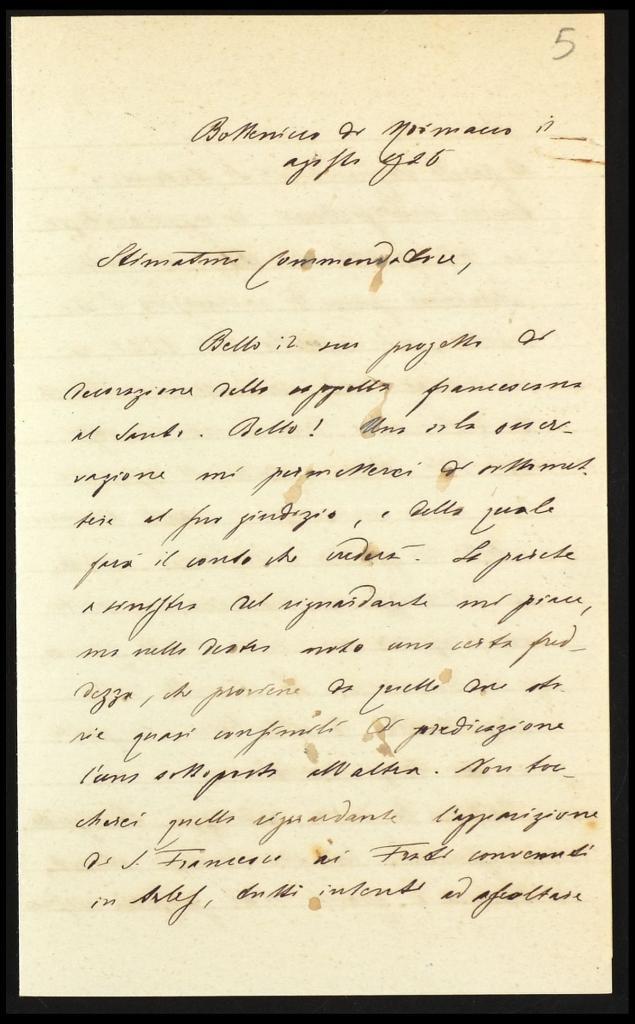 5
Bottenicco di Moimacco il
agosto 1926
Stimatmo Commendatore,
Bello il suo progetto di
decorazione della cappella francescana
al Santo. Bello! Una sola osser-
vazione mi permetterei di sottomet-
tere al suo giudizio, e della quale
farà il conto che crederà. La parete
a sinistra del riguardante mi piace,
ma nella destra noto una certa fred-
dezza, che proviene da quelle due sto-
rie quasi consimili di predicazione
l'una sottoposta all'altra. Non toc-
cherei quella riguardante l'apparizione
di S. Francesco ai Frati convenuti
in Arles, tutti intenti ad ascoltare